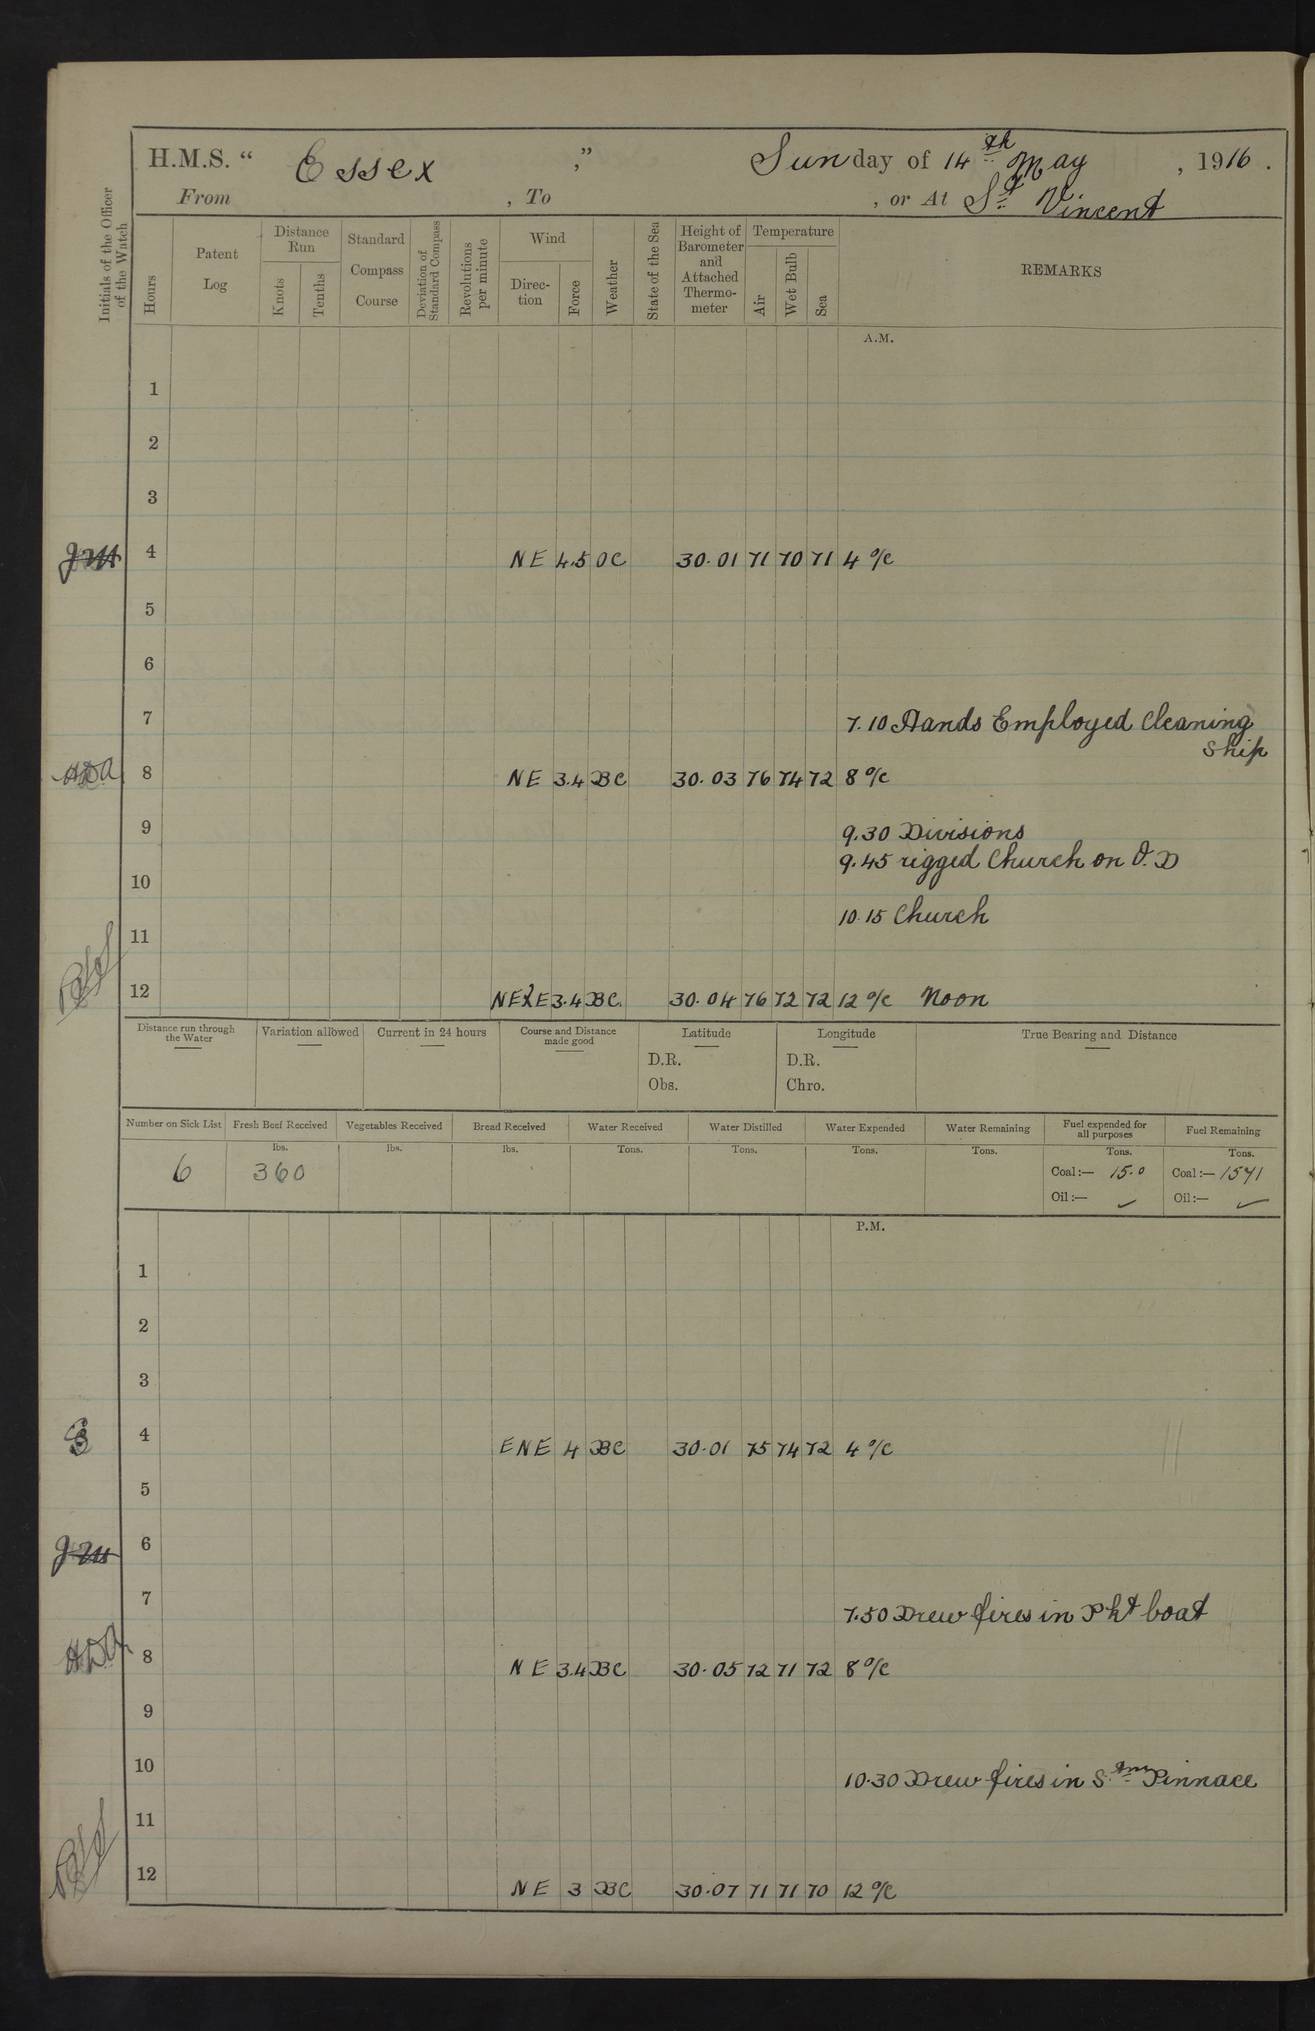 H.M.S. “ Essex ,” Sunday of 14th May , 1916 .
From , To , or At St Vincent
Initials of the Officer of the Watch
Hours
Patent Log
Distance Run
Knots
Tenths
Standard Compass Course
Deviation of Standard Compass
Revolutions per minute
Wind
Direction
Force
Weather
State of the Sea
Height of Barometer and Attached Thermometer
Temperature
Air
Wet Bulb
Sea
REMARKS
A.M.
1
2
3
4 NE 4.5 OC 30.01 71 70 71 4 o/c
5
6
7 7.10 Hands Employed Cleaning
Ship
8 NE 3.4 BC 30.03 76 74 72 8 o/c
9 9.30 Divisions
9.45 rigged Church on Q.D
10
10.15 Church
11
12 NExE 3.4 BC. 30.04 76 72 72 12 o/c Noon
Distance run through the Water
Variation allowed
Current in 24 hours
Course and Distance made good
Latitude
D.R.
Obs.
Longitude
D.R.
Chro.
True Bearing and Distance
Number on Sick List
6
Fresh Beef Received
lbs.
360
Vegetables Received
lbs.
Bread Received
lbs.
Water Received
Tons.
Water Distilled
Tons.
Water Expended
Tons.
Water Remaining
Tons.
Fuel expended for all purposes
Tons.
Coal:— 15.0
Oil:— ✓
Fuel Remaining
Tons.
Coal:— 1541
Oil:— ✓
P.M.
1
2
3
4 ENE 4 BC 30.01 75 74 72 4 o/c
5
6
7 7.50 Drew fires in Pkt boat
8 NE 3.4 BC 30.05 72 71 72 8 o/c
9
10 10.30 Drew fires in Stm Pinnace
11
12 NE 3 BC 30.07 71 71 70 12 o/c